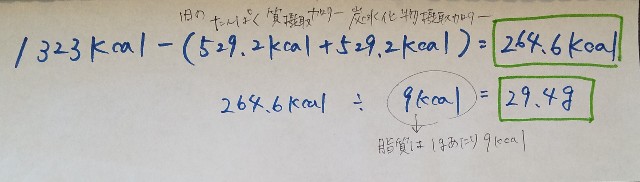 1日の たんぱく質摂取カロリー 炭水化物摂取カロリー
1323kcal-(529.2kcal+529.2kcal)=264.6kcal
264.6kcal ÷ 9kcal=29.4g
脂質は1gあたり9kcal